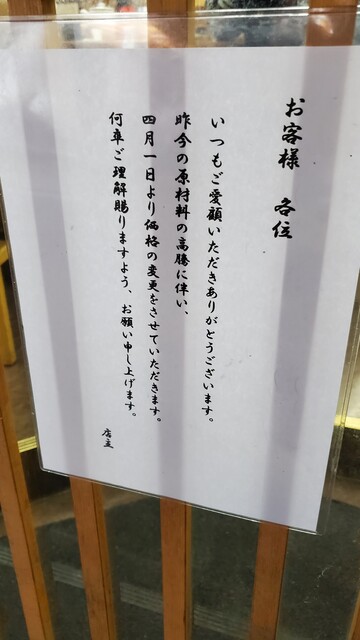 お客様 各位
いつもご愛顧いただきありがとうございます。
昨今の原材料の高騰に伴い、
四月一日より価格の変更をさせていただきます。
何卒ご理解賜りますよう、お願い申し上げます。
店主